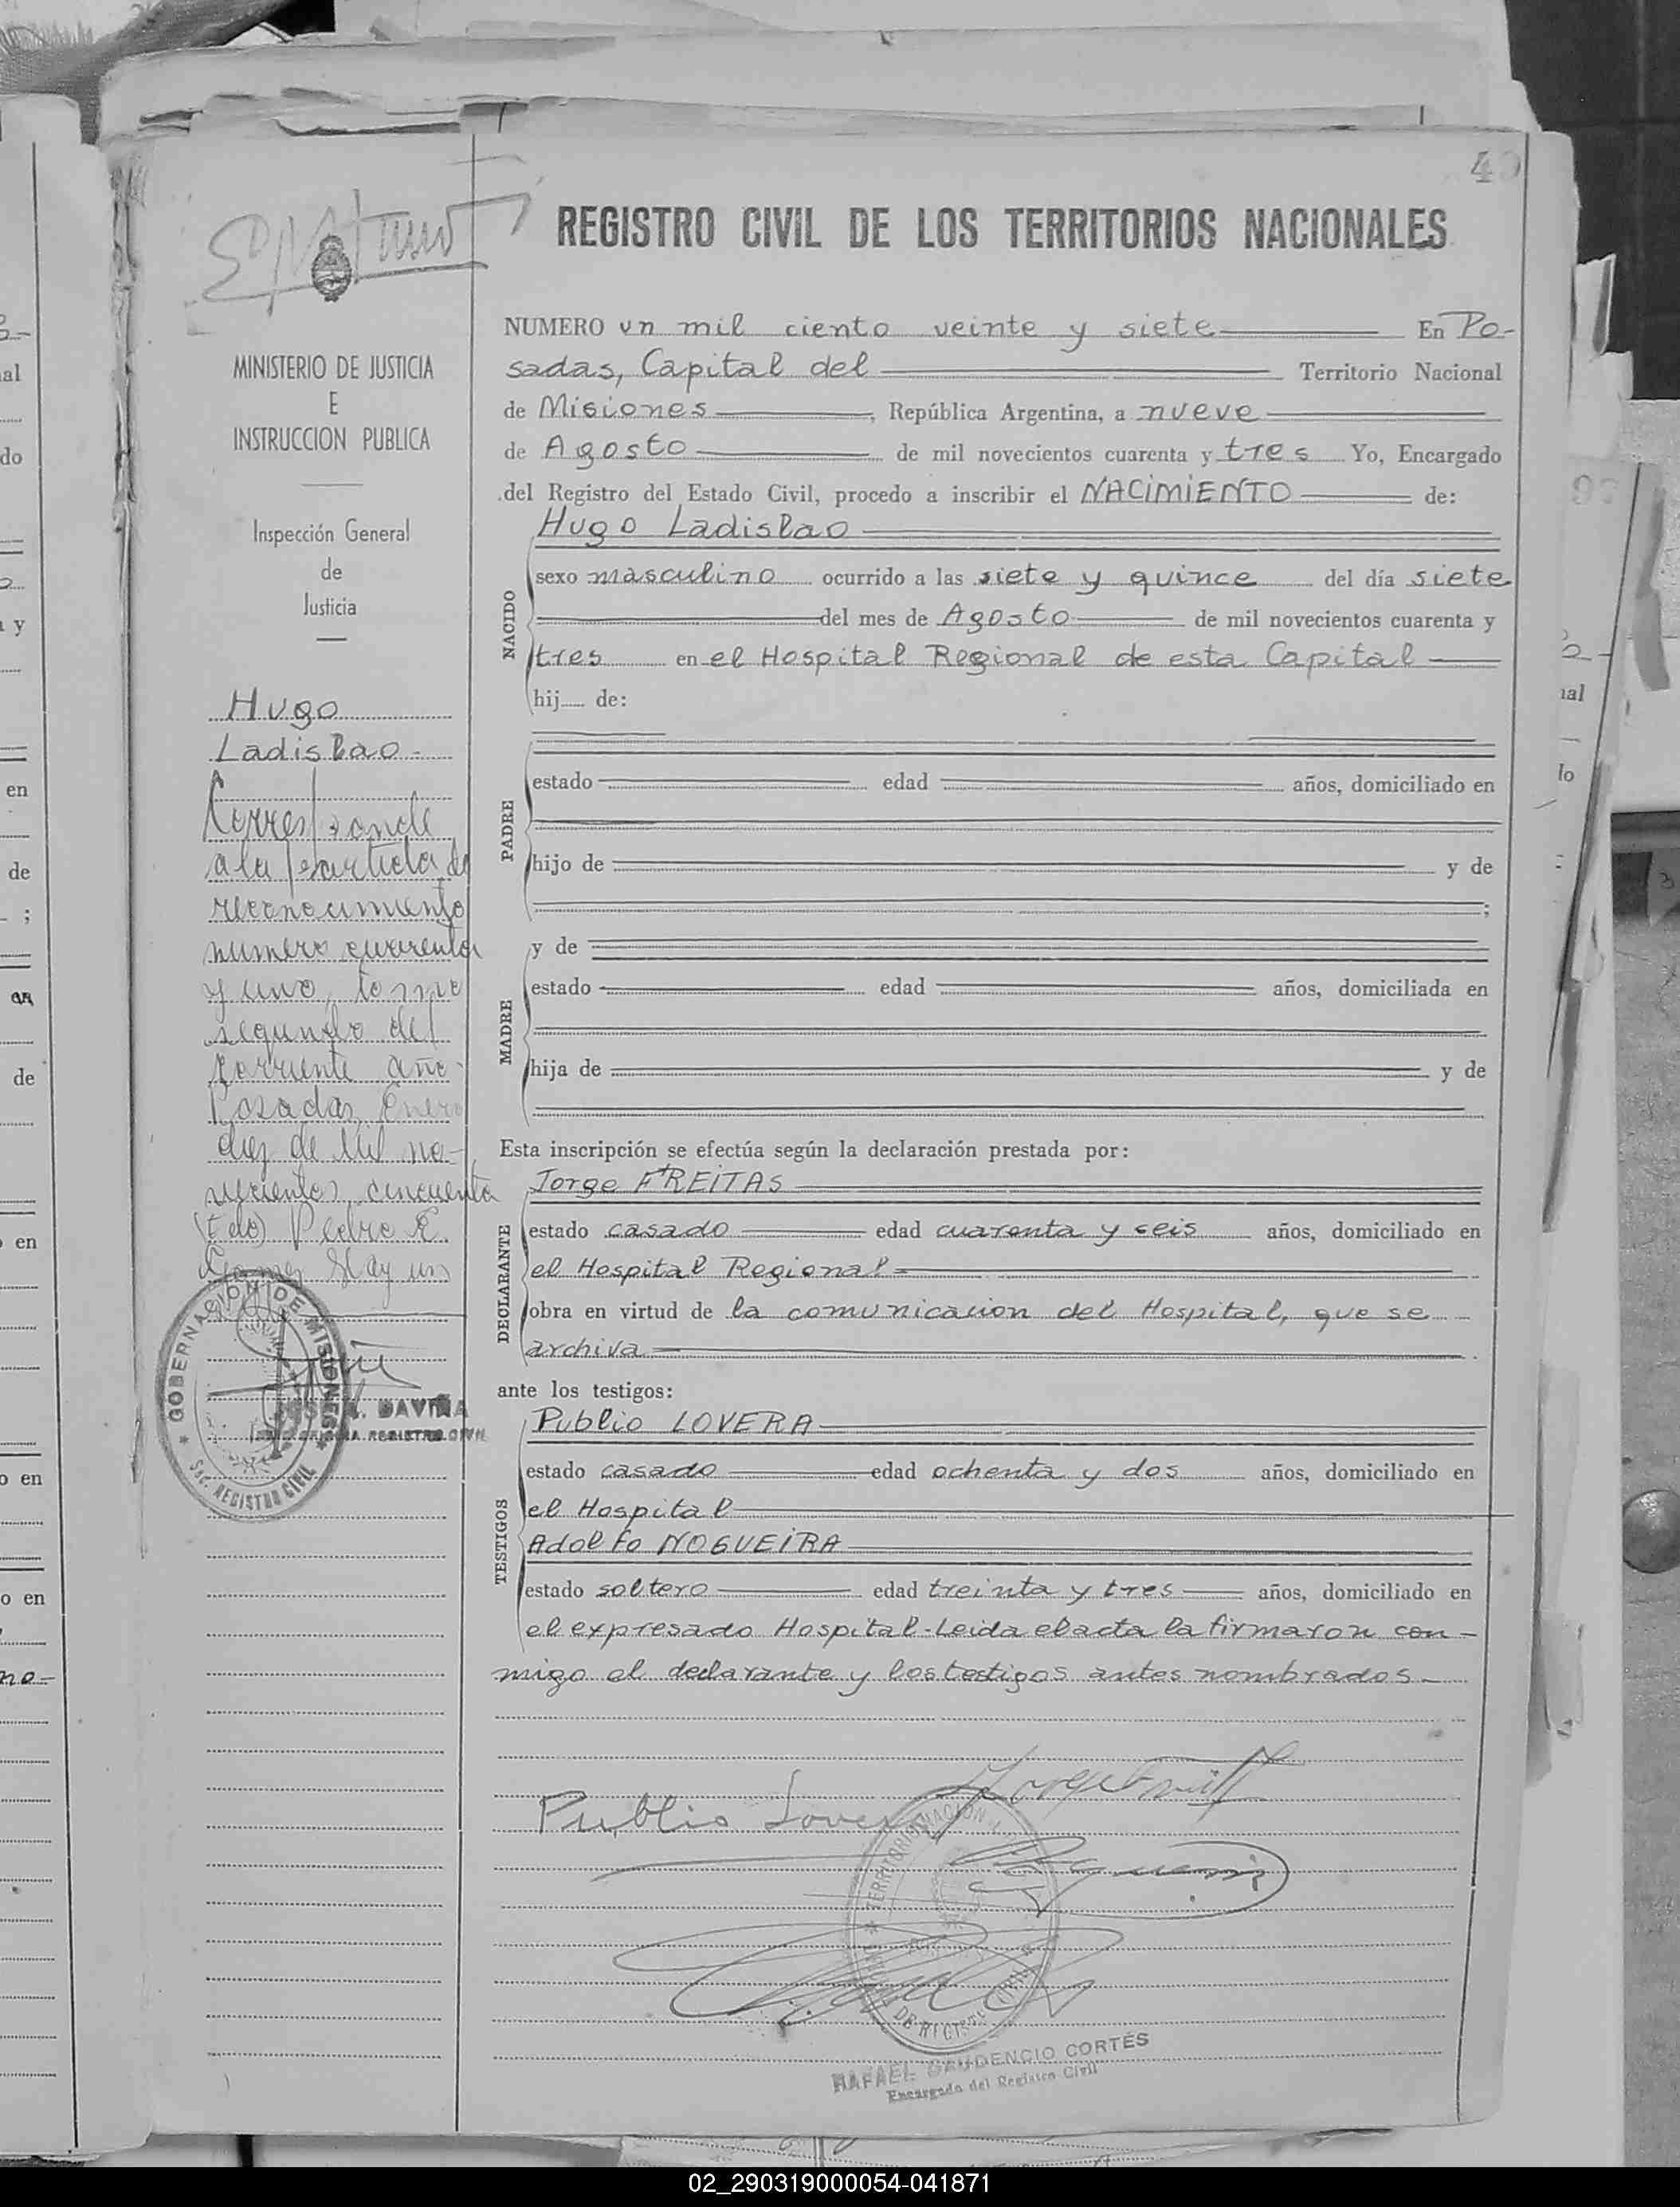 40
REGISTRO CIVIL DE LOS TERRITORIOS NACIONALES
MINISTERIO DE JUSTICIA
E
INSTRUCCION PUBLICA
Inspección General
de
Justicia
Hugo
Ladislao.-
Corresponde
a la partida de
reconocimiento
numero cuarenta
y uno, tomo
segundo del
corriente año-
Posadas, Enero
diez de Mil no-
vecientos cincuenta
(Fdo) Pedro E.
Hay un
GOBERNACION DE MISIONES
Sec. REGISTRO CIVIL
DAVIÑA
REGISTRO CIVIL
NUMERO un mil ciento veinte y siete En Po-
sadas, Capital del Territorio Nacional
de Misiones, República Argentina, a nueve
de Agosto de mil novecientos cuarenta y tres Yo, Encargado
del Registro del Estado Civil, procedo a inscribir el NACIMIENTO de:
NACIDO
Hugo Ladislao
sexo masculino ocurrido a las siete y quince del día siete
del mes de Agosto de mil novecientos cuarenta y
tres en el Hospital Regional de esta Capital
hij de:
PADRE
estado edad años, domiciliado en
hijo de y de
;
MADRE
y de
estado edad años, domiciliada en
hija de y de
Esta inscripción se efectúa según la declaración prestada por:
DECLARANTE
Jorge FREITAS
estado casado edad cuarenta y seis años, domiciliado en
el Hospital Regional
obra en virtud de la comunicacion del Hospital, que se
archiva
ante los testigos:
TESTIGOS
Publio LOVERA
estado casado edad ochenta y dos años, domiciliado en
el Hospital
Adolfo NOGUEIRA
estado soltero edad treinta y tres años, domiciliado en
el expresado Hospital-Leida el acta la firmaron con-
migo el declarante y los testigos antes nombrados-
Publio Lovera
RAFAEL GAUDENCIO CORTÉS
Encargado del Registro Civil
02_290319000054-041871